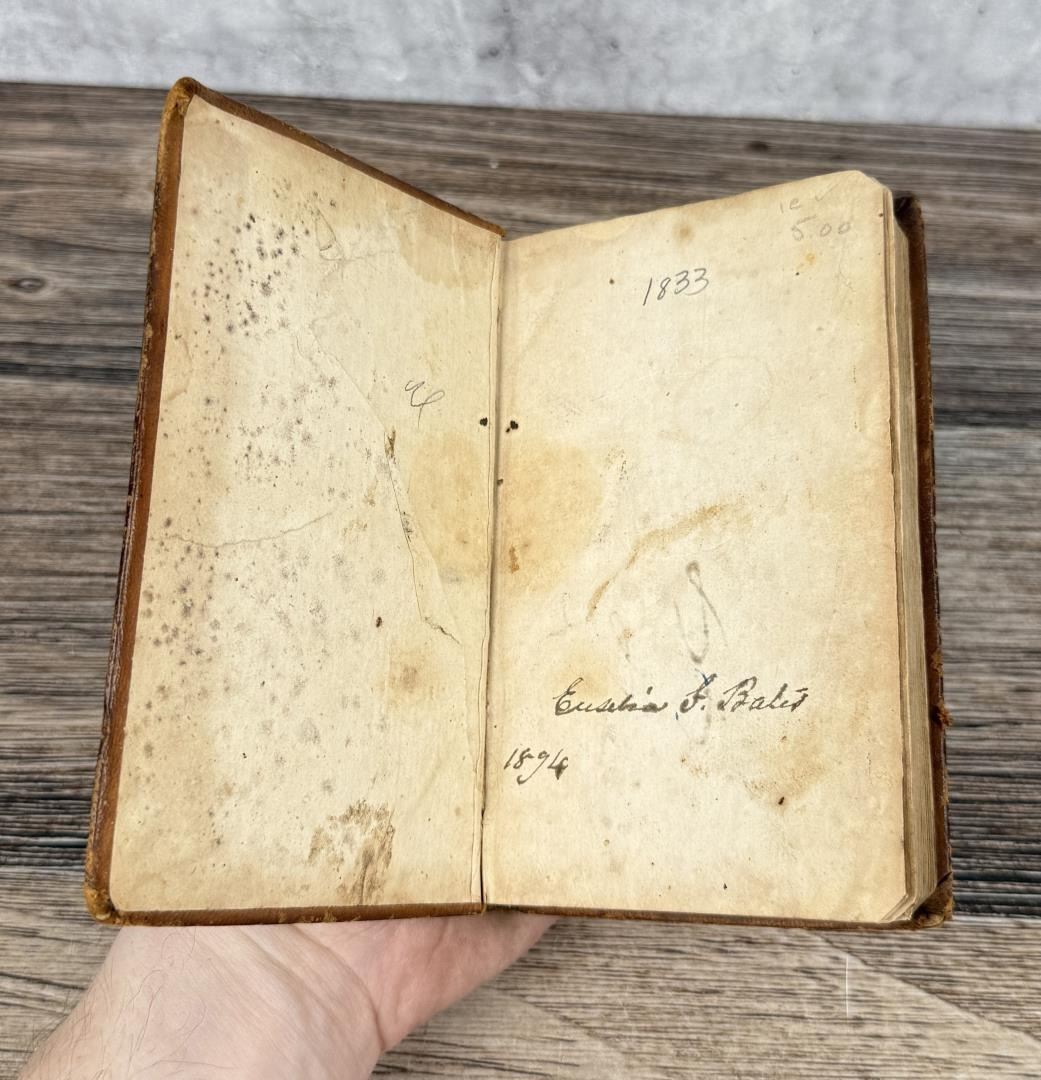 5.00
1833
Eusebia F. Bates
1894